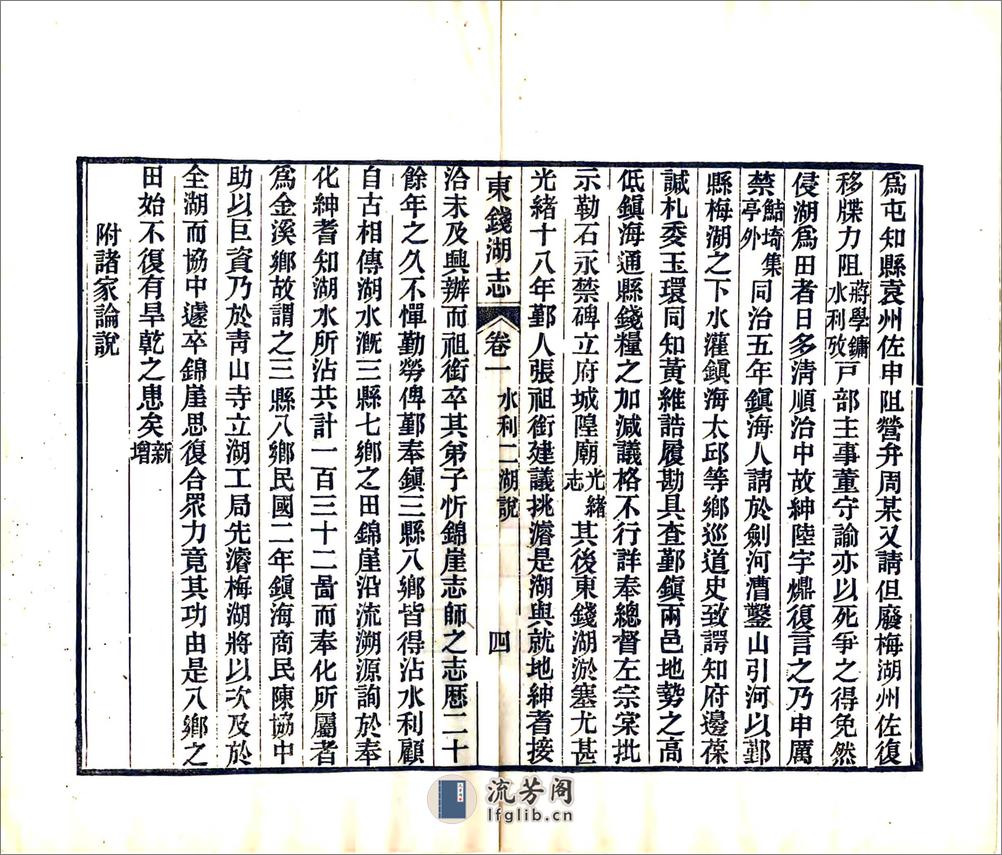 爲屯知縣袁州佐申阻營弁周某又請但廢梅湖州佐復
移牒力阻蔣學鏞水利攷戸部主事董守諭亦以死爭之得免然
侵湖爲田者日多清順治中故紳陸宇𤐠復言之乃申厲
禁鮚埼亭外集同治五年鎮海人請於劍河漕鑿山引河以鄞
縣梅湖之下水灌鎮海太邱等鄉巡道史致諤知府邊葆
誠札委玉環同知黃維誥履勘具查鄞鎮兩邑地勢之高
低鎮海通縣錢糧之加減議格不行詳奉總督左宗棠批
示勒石永禁碑立府城隍廟光緒志其後東錢湖淤塞尤甚
光緒十八年鄞人張祖銜建議挑濬是湖與就地紳耆接
東錢湖志 卷一 水利二湖說 四
洽未及興辦而祖銜卒其弟子忻錦崖志師之志歷二十
餘年之久不憚勤勞俾鄞奉鎮三縣八鄉皆得沾水利顧
自古相傳湖水溉三縣七鄉之田錦崖沿流溯源詢於奉
化紳耆知湖水所沾共計一百三十二啚而奉化所屬者
爲金溪鄉故謂之三縣八鄉民國二年鎮海商民陳協中
助以巨資乃於青山寺立湖工局先濬梅湖將以次及於
全湖而協中遽卒錦崖思復合眾力竟其功由是八鄉之
田始不復有旱乾之患矣新增
附諸家論說
流芳阁
lfglib.cn